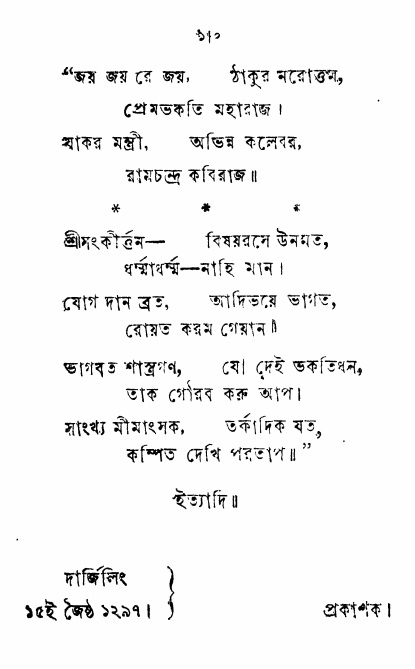 ১৷৹
“জয় জয় রে জয়, ঠাকুর নরোত্তম,
প্রেমভকতি মহারাজ।
যাকর মন্ত্রী, অভিন্ন কলেবর,
রামচন্দ্র কবিরাজ॥
* * *
শ্রীসংকীর্ত্তন— বিষয়রসে উনমত,
ধর্ম্মাধর্ম্ম—নাহি মান।
যোগ দান ব্রত, আদিভয়ে ভাগত,
রোয়ত করম গেয়ান॥
ভাগবত শাস্ত্রগণ, যো দেই ভকতিধন,
তাক গৌরব করু আপ।
সাংখ্য মীমাংসক, তর্কাদিক যত,
কম্পিত দেখি পরতাপ॥”
ইত্যাদি॥
দার্জিলিং
১৫ই জৈষ্ঠ ১২৯৭। প্রকাশক।